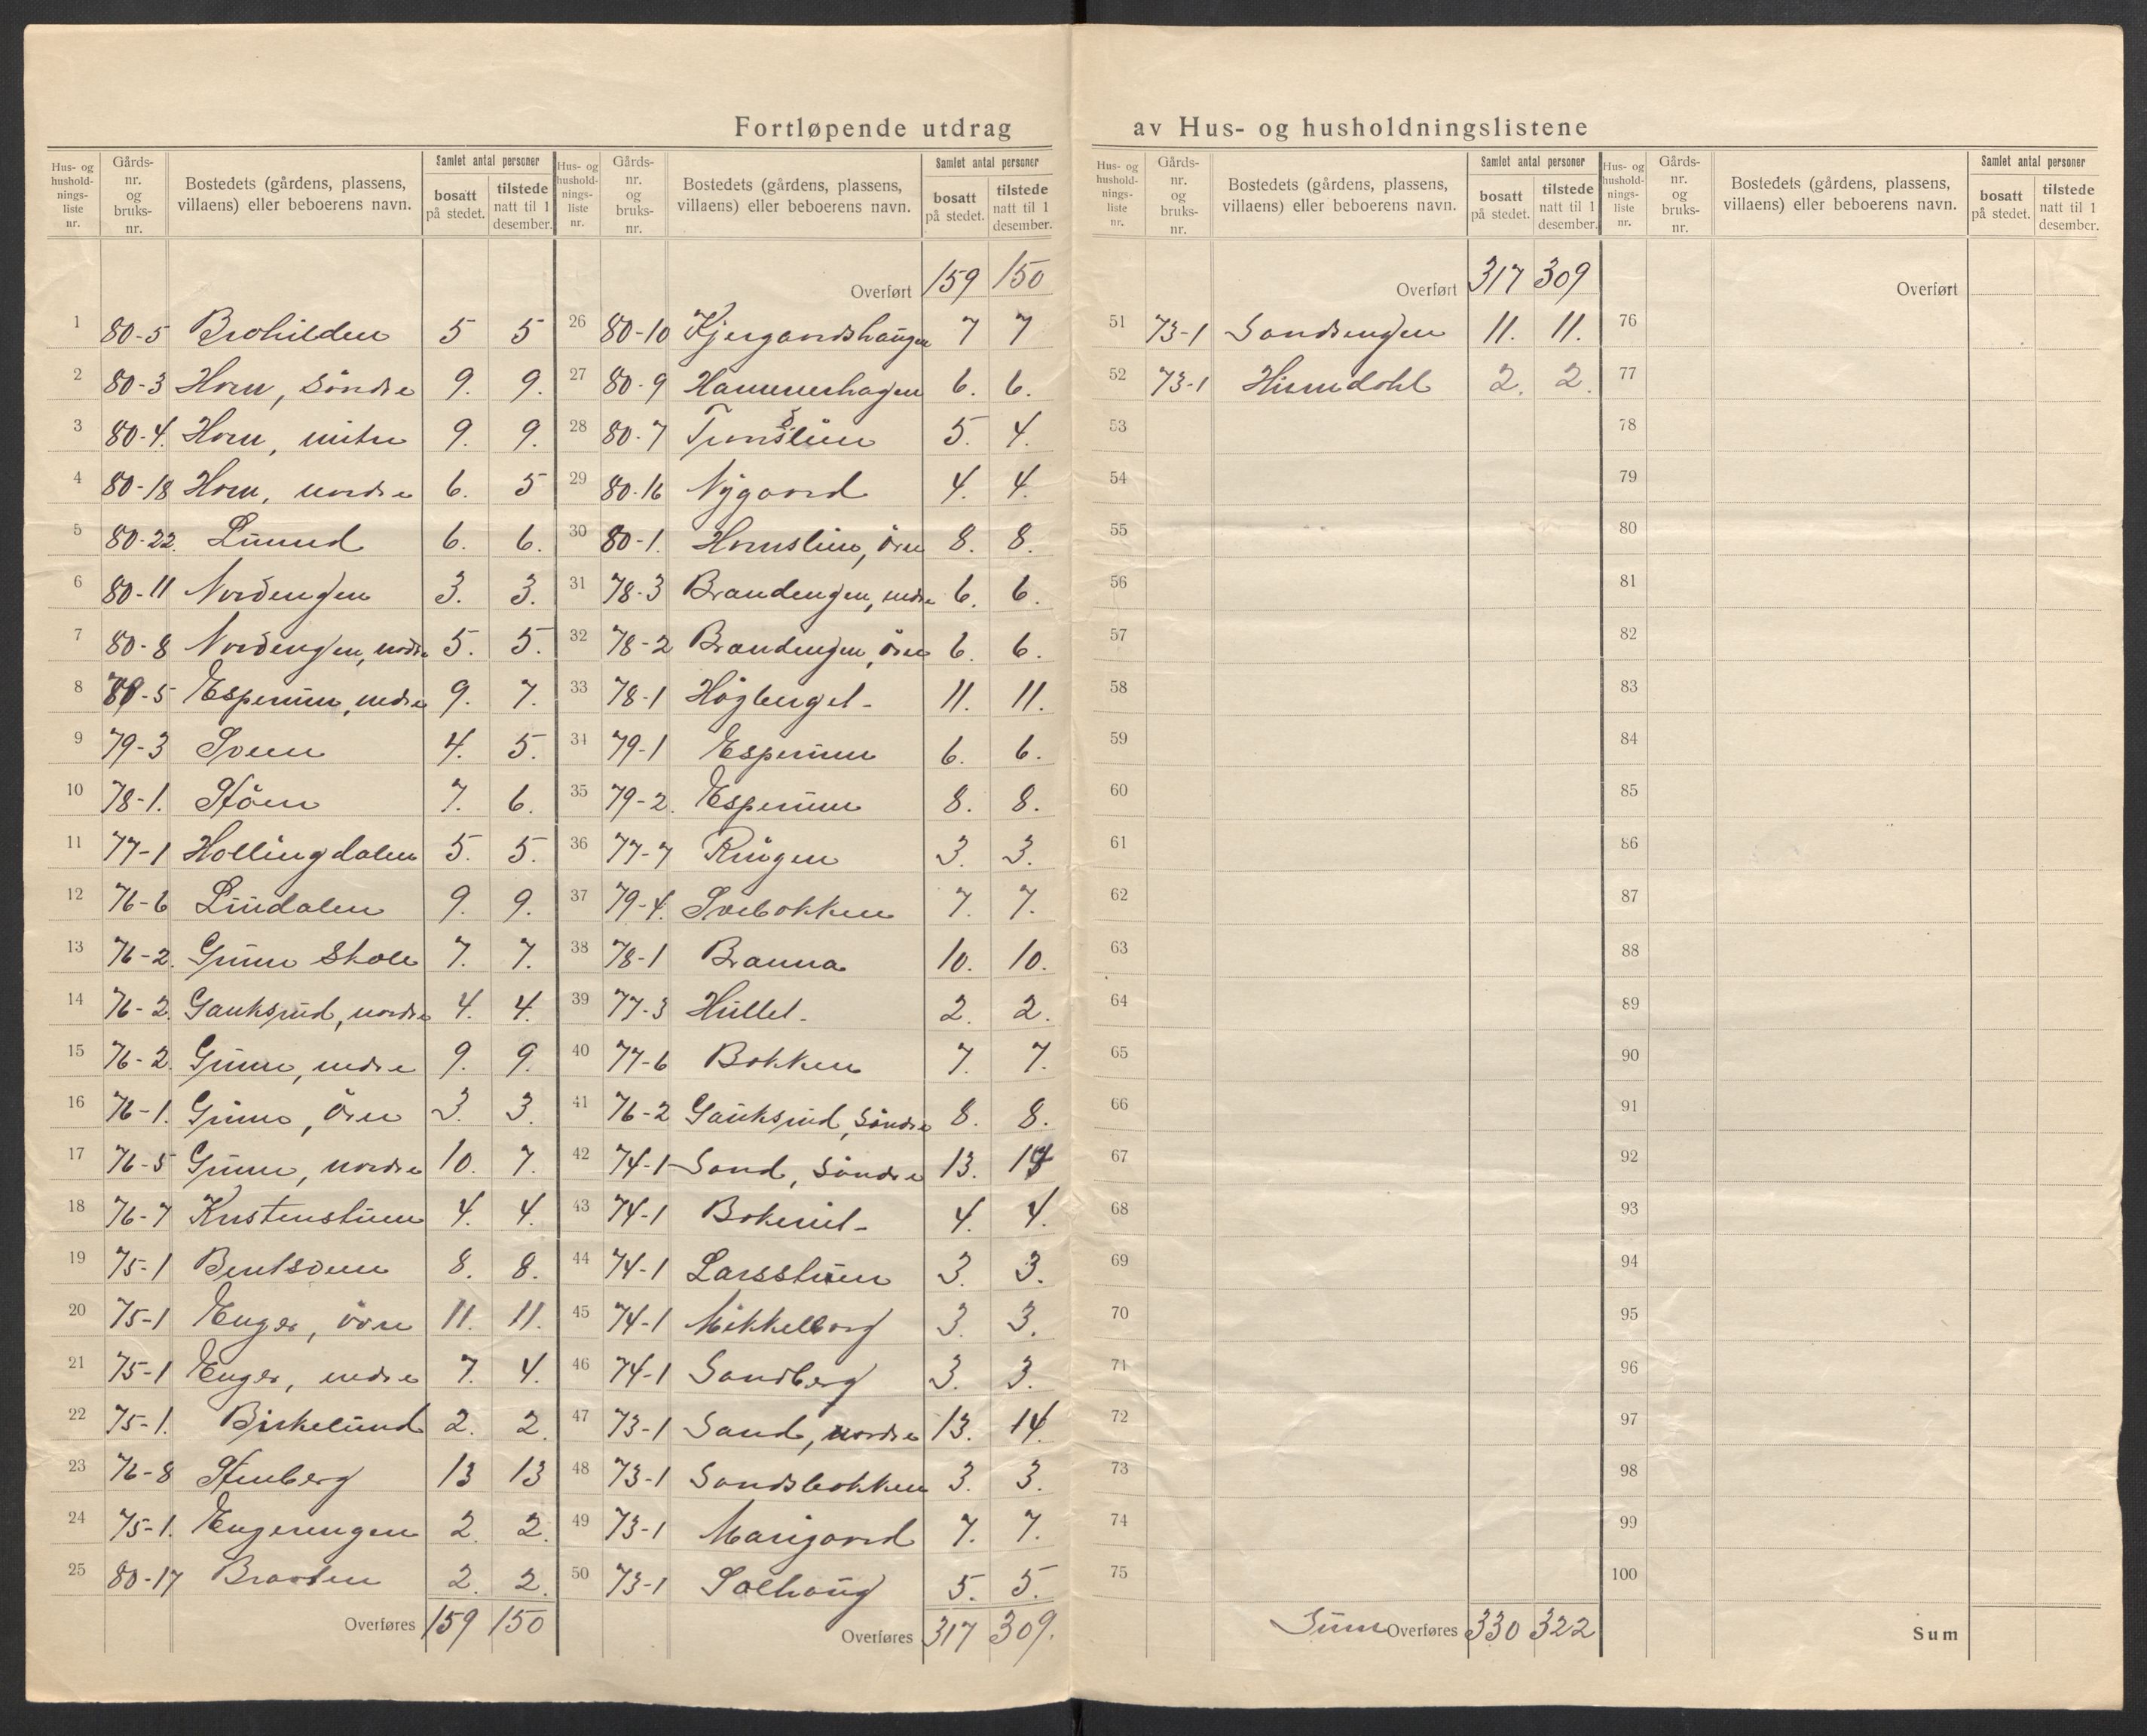 Fortløpende utdrag av Hus- og husholdningslistene
Hus- og husholdnings-liste nr. | Gårds-nr. og bruks-nr. | Bostedets (gårdens, plassens, villaens) eller beboerens navn. | Samlet antal personer | bosatt på stedet. | tilstede natt til 1 desember.
1 80-5 Brohilden 5 5
2 80-3 Horn, Söndre 9. 9.
3 80-4. Horn, mitre 9. 9.
4 80-18 Horn, nordre 6. 5
5 80-22. Lunnd 6. 6.
6 80-11 Nordengen 3. 3.
7 80-8 Nordengen, nordre 5. 5.
8 79-5 Esperum, nedre 9. 7.
9 79-3 Sveen 4. 5.
10 78-1. Stöen 7. 6.
11 77-1 Hollingdalen 5. 5.
12 76-6 Lindalen 9. 9.
13 76-2. Grime Skole 7. 7.
14 76-2. Gauksrud, nordre 4. 4.
15 76-2. Grime, nedre 9. 9.
16 76-1. Grime, övre 3. 3.
17 76-5 Grime, nordre 10. 7.
18 76-7 Kristenstuen 4. 4.
19 75-1 Bentsveen 8. 8.
20 75-1 Enger, övre 11. 11.
21 75-1 Enger, nedre 7. 4.
22 75-1. Birkelund 2. 2.
23 76-8 Stenberg 13 13
24 75-1. Engerengen 2. 2.
25 80-17 Braaten 2. 2.
Overføres 159 150
Hus- og husholdnings-liste nr. | Gårds-nr. og bruks-nr. | Bostedets (gårdens, plassens, villaens) eller beboerens navn. | Samlet antal personer | bosatt på stedet. | tilstede natt til 1 desember.
Overført 159 150
26 80-10 Kjergardshaugen 7 7
27 80-9 Hammerhagen 6. 6.
28 80-7 5. 4.
29 80-16 Nygaard 4. 4.
30 80-1. Hornslien, övre 8. 8.
31 78-3 Brandengen, nedre 6. 6.
32 78-2 Brandengen, övre 6. 6.
33 78-1 Högberget 11. 11.
34 79-1 Esperum 6. 6.
35 79-2. Esperum 8. 8.
36 77-7 Ringen 3. 3.
37 79-4. Svebakken 7. 7.
38 78-1 Branna 10. 10.
39 77-3 Hullet 2. 2.
40 77-6 Bakken 7. 7.
41 76-2 Gauksrud, Söndre 8. 8.
42 74-1 Sand, Söndre 13. 14
43 74-1 4. 4.
44 74-1 Larsstuen 3. 3.
45 74-1 Mikkelborg 3. 3.
46 74-1 Sandberg 3. 3.
47 73-1 Sand, nordre 13. 14.
48 73-1 Sandsbakken 3. 3.
49 73-1 Marigaard 7. 7.
50 73-1 Solhaug 5. 5.
Overføres 317 309.
Hus- og husholdnings-liste nr. | Gårds-nr. og bruks-nr. | Bostedets (gårdens, plassens, villaens) eller beboerens navn. | Samlet antal personer | bosatt på stedet. | tilstede natt til 1 desember.
Overført 317 309
51 73-1 Sandsengen 11. 11.
52 73-1 Himdahl 2. 2.
53
54
55
56
57
58
59
60
61
62
63
64
65
66
67
68
69
70
71
72
73
74
75
Sum Overføres 330 322
Hus- og husholdnings-liste nr. | Gårds-nr. og bruks-nr. | Bostedets (gårdens, plassens, villaens) eller beboerens navn. | Samlet antal personer | bosatt på stedet. | tilstede natt til 1 desember.
Overført
76
77
78
79
80
81
82
83
84
85
86
87
88
89
90
91
92
93
94
95
96
97
98
99
100
Sum